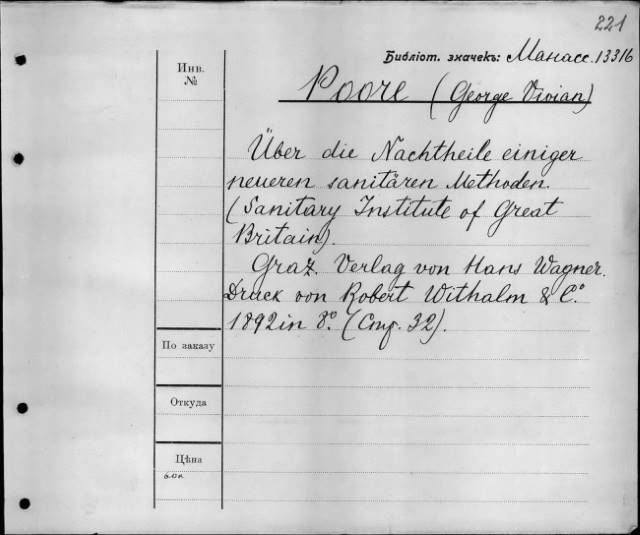 221
Библіот. значекъ: Манасс. 13316
Инв.
№
Poore (George Vivian)
Über die Nachtheile einiger
neueren sanitären Methoden.
(Sanitary Institute of Great
Britain).
Graz. Verlag von Hans Wagner.
Druck von Robert Withalm & Cº
1892 in 8º. (Стр. 32).
По заказу
Откуда
Цѣна